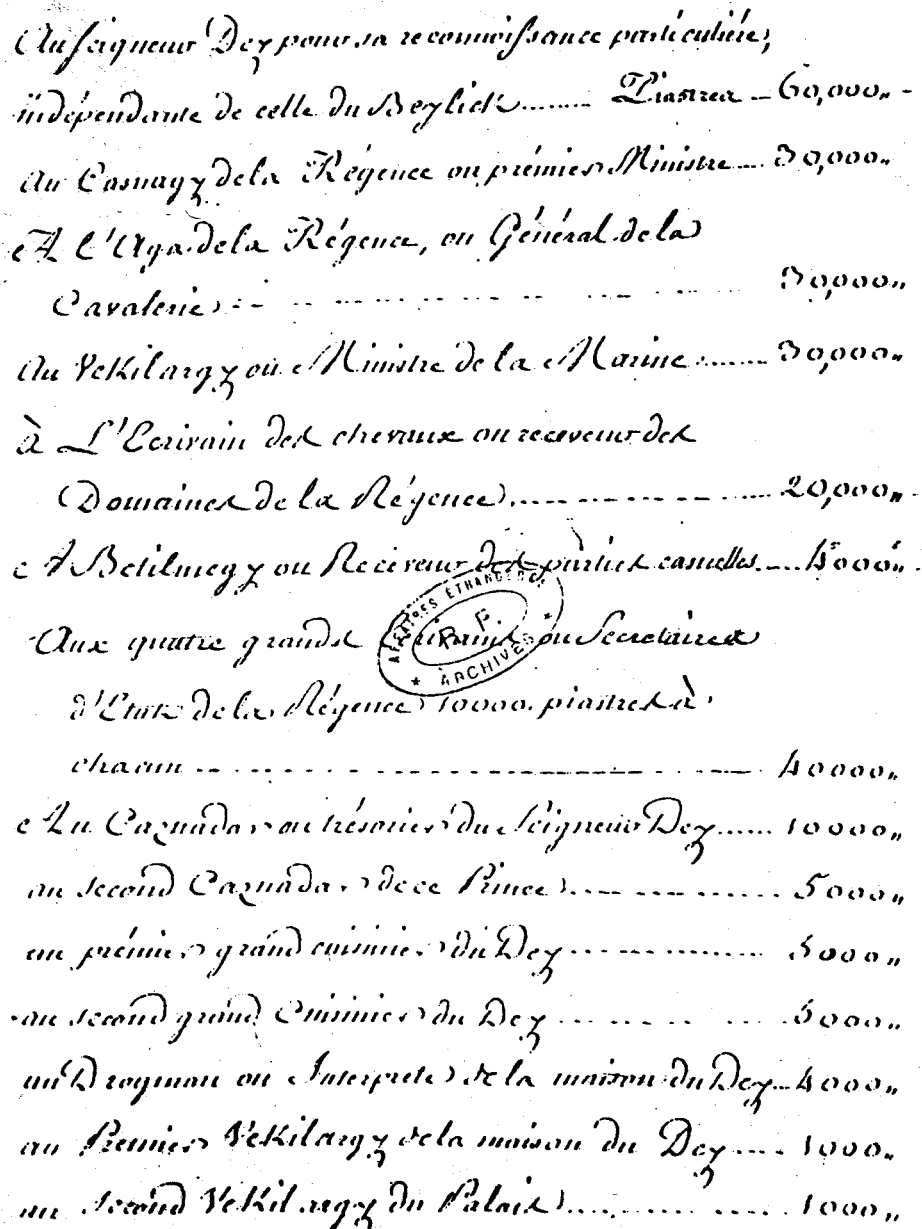 Au seigneur Dey pour sa reconnoissance particuliére,
indépendante de celle du Beylick ........ Piastres - 60,000,,
Au Casnagy de la Régence ou prémier Ministre ... 30,000,,
A L'Aga de la Régence, ou Général de la
Cavalerie ........ 30,000,,
Au Vekilargy ou Ministre de la Marine ........ 30,000,,
à L'Ecrivain des chevaux ou receveur des
Domaines de la Régence ........ 20,000,,
A Betilmegy ou Receveur des parties casuelles .... 4000,,
Aux quattre grands Ecrivains ou Secretaires
AFFAIRES ÉTRANGÈRES
R. F.
* ARCHIVES *
d'Etat de la Régence 10000. piastres à
chacun ........ 40000,,
Au Caznadar ou trésorier du Seigneur Dey ...... 10000,,
au second Caznadar de ce Prince ........ 5000,,
au prémier grand cuisinier du Dey ........ 5000,,
au second grand Cuisinier du Dey ........ 5000,,
au Drogman ou Interprete de la maison du Dey ... 4000,,
au Premier Vekilargy de la maison du Dey .... 1000,,
au Second Vekilargy du Palais ........ 1000,,